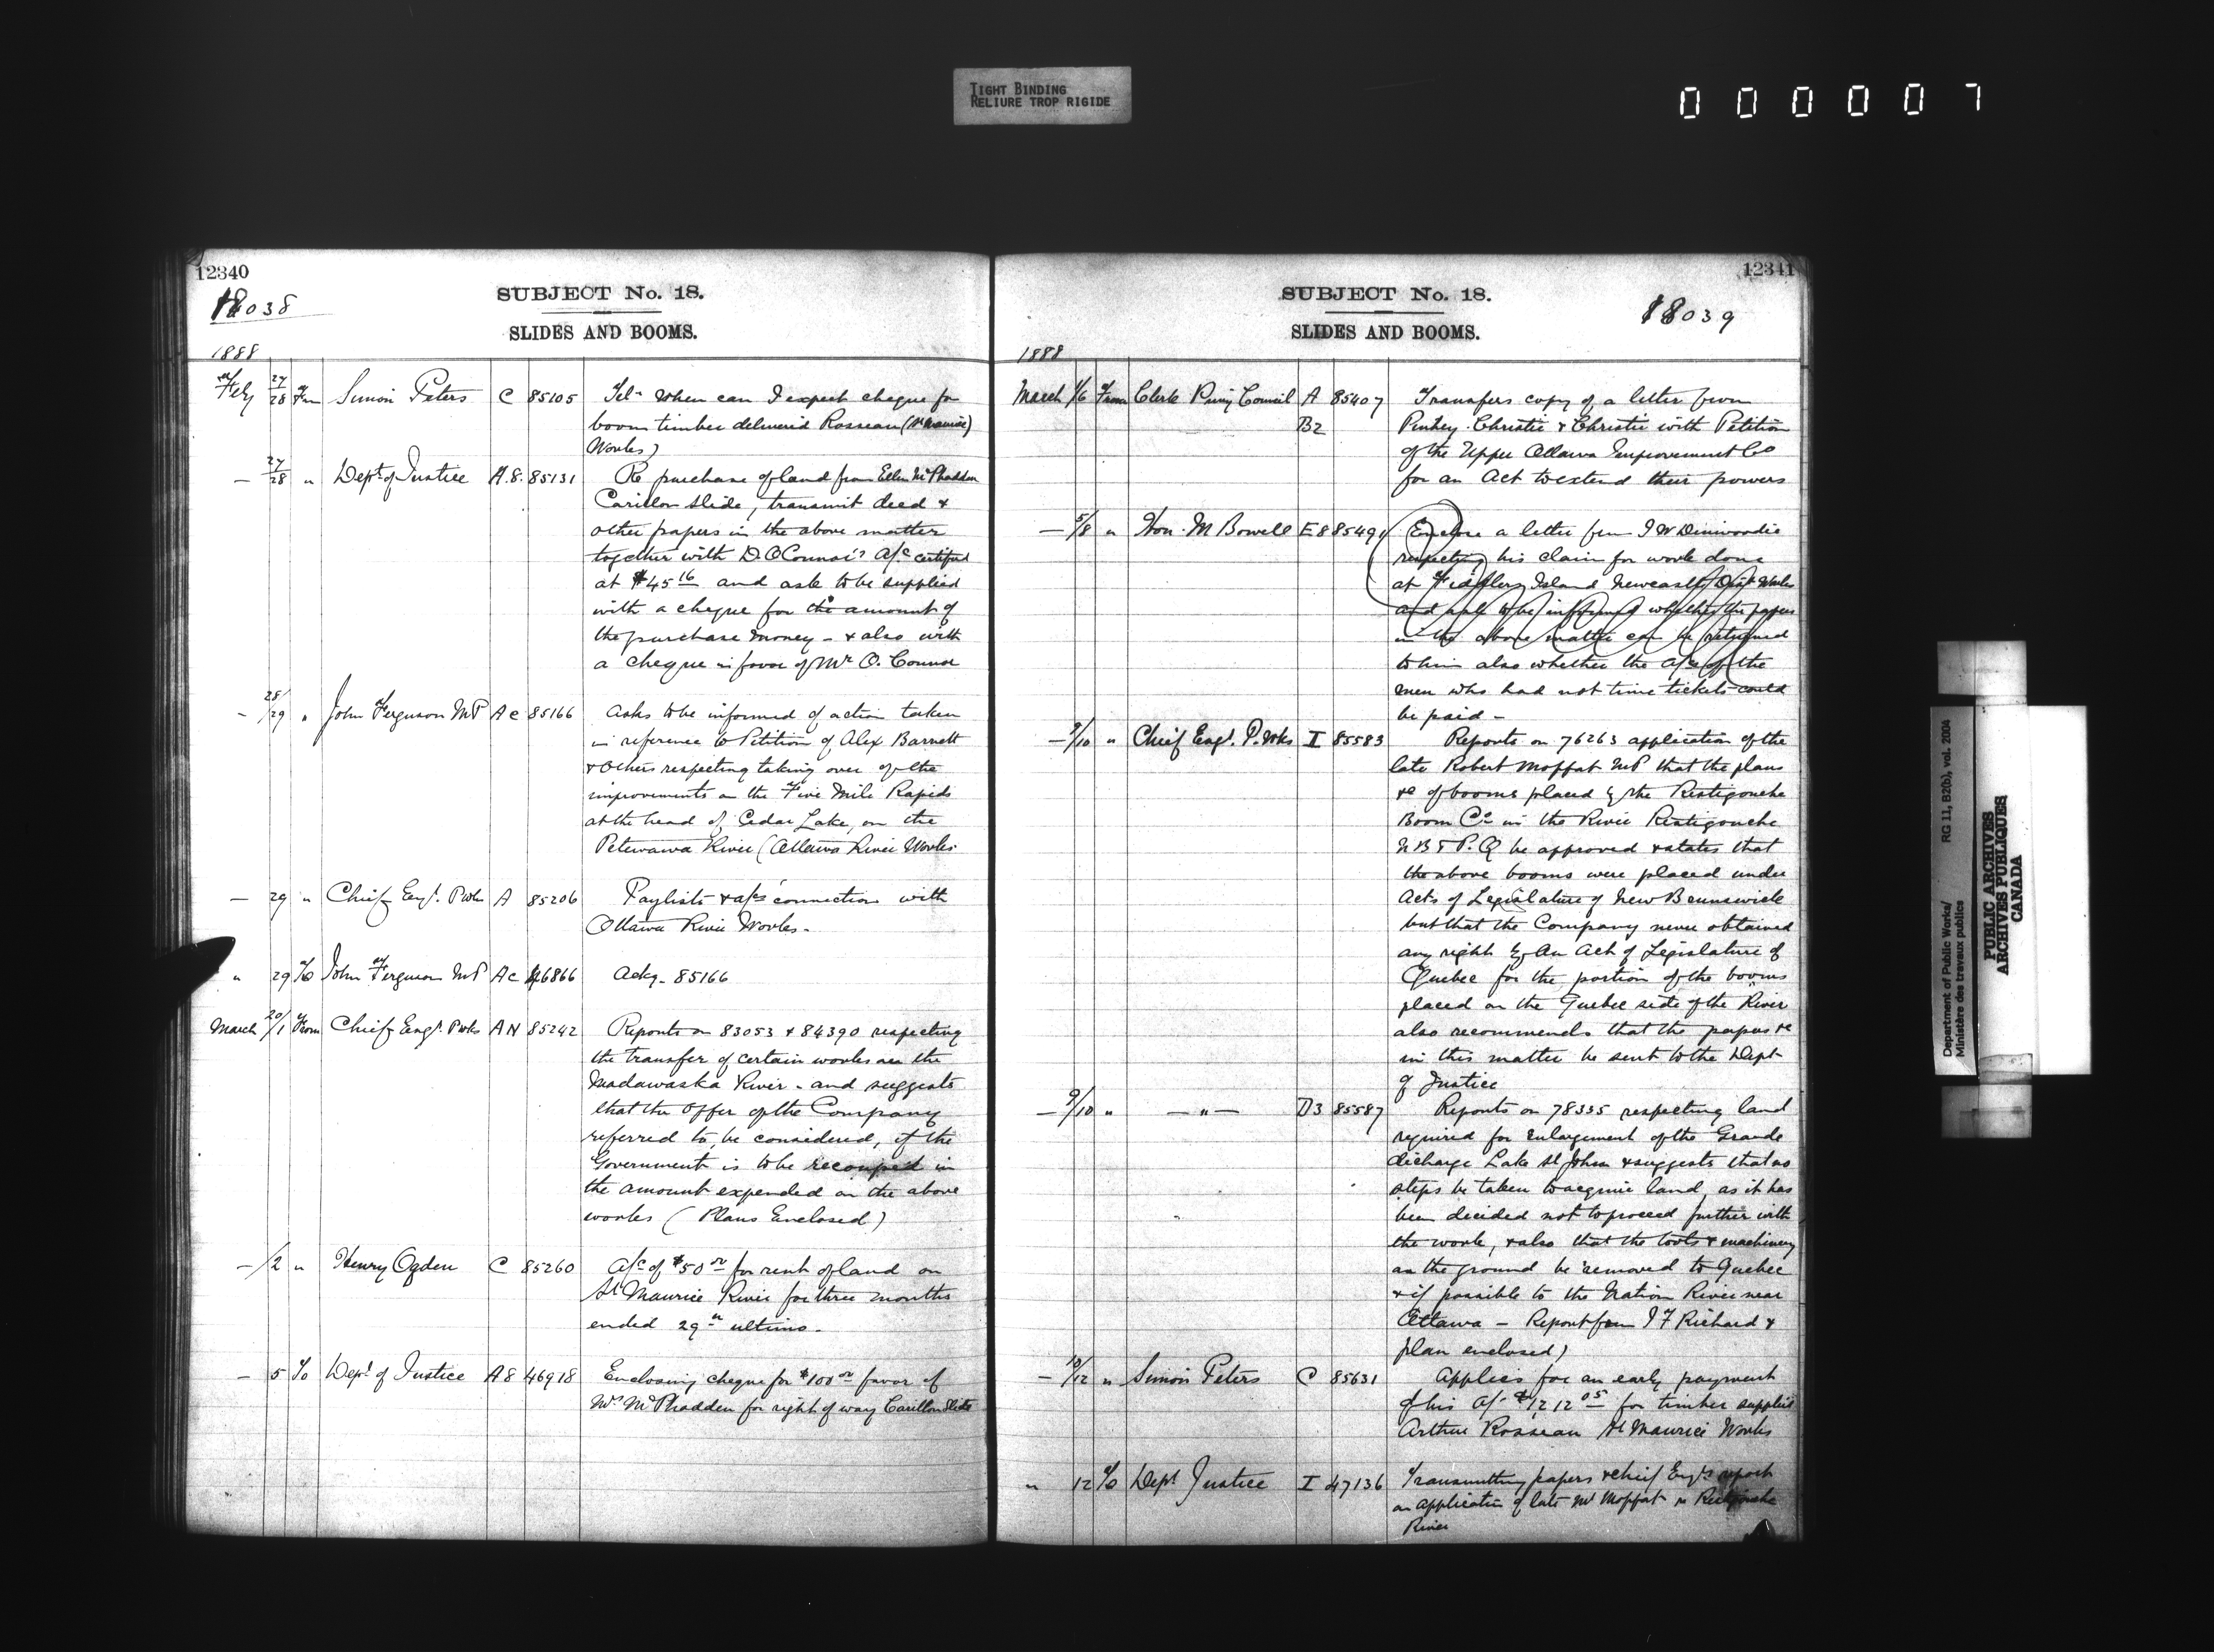 TIGHT BINDING
RELIURE TROP RIGIDE
000007
12340
18038
SUBJECT No. 18.
SLIDES AND BOOMS.
1888
Feby 27/28 From Simon Peters C 85105 Tel- When can I expect cheque for
boom timber delivered Rosseau (St Maurice)
Works)
— 27/28 " Dept of Justice A.8. 85131 Re purchase of land from Ellen McPhadden
Carillon slide, transmit deed &
other papers in the above matter
together with D. OConnor's a/c certified
at $45 16 and ask to be supplied
with a cheque for the amount of
the purchase money - & also with
a cheque in favor of Mr O. Connor
— 28/29 " John Ferguson MP A c 85166 Asks to be informed of action taken
in reference to Petition of Alex Barnett
& others respecting taking over of the
improvements on the Five Mile Rapids
at the head of Cedar Lake, on the
Petewawa River (Ottawa River Works
— 29 " Chief Engr. P wks A 85206 Paylists & a/cs connection with
Ottawa River Works-
" 29 To John Ferguson MP A c 46866 Ackg. 85166
March 20/1 From Chief Engr. P wks A N 85242 Reports on 83053 & 84390 respecting
the transfer of certain works on the
Madawaska River - and suggests
that the offer of the Company
referred to, be considered, if the
Government is to be recouped in
the amount expended on the above
works (Plans Enclosed)
— /2 " Henry Ogden C 85260 A/c of $50 00 for rent of land on
St Maurice River for three months
ended 29th ultimo.
— 5 To Dept of Justice A 8 46918 Enclosing cheque for $100 00 favor of
McPhadden for right of way Carillon Slide
12341
18039
SUBJECT No. 18.
SLIDES AND BOOMS.
1888
March 1/6 From Clerk Privy Council A 85407 Transfers copy of a letter from
B2 Pinhey Christie & Christie with Petition
of the Upper Ottawa Improvement Co
for an Act to extend their powers
— 5/8 " Hon. M Bowell E 8 85491 Enclose a letter from J W Dinwoodie
respecting his claim for work done
at Fiddlers Island Newcastle Dist Works
and ask to be informed whether the papers
in the above matter can be returned
to him also whether the a/cs of the
men who had not time tickets could
be paid -
— 9/10 " Chief Engr. P. Wks I 85583 Reports on 76263 application of the
late Robert Moffat MP that the plans
&c of booms placed by the Restigouche
Boom Co in the River Restigouche
N B & P. Q be approved & states that
the above booms were placed under
Acts of Legislature of New Brunswick
but that the Company never obtained
any right by An Act of Legislature of
Quebec for the portion of the booms
placed on the Quebec side of the River
also recommends that the papers &c
in this matter be sent to the Dept
of Justice
— 9/10 " — " — D3 85587 Reports on 78335 respecting land
required for enlargement of the Grande
discharge Lake St John & suggests that no
steps be taken to acquire land, as it has
been decided not to proceed further with
the work, & also that the tools & machinery
on the ground be removed to Quebec
& if possible to the Nation River near
Ottawa - Report from J F Richard &
plan enclosed)
— 10/12 " Simon Peters C 85631 Applies for an early payment
of his a/c $1212 05 for timber supplied
Arthur Rosseau St Maurice Works
" 12 To Dept Justice I 47136 Transmitting papers & chief Engrs report
on application of late Mr Moffat re Restigouche
River
Department of Public Works/ RG 11, B2(b), vol. 2004
Ministère des travaux publics
PUBLIC ARCHIVES
ARCHIVES PUBLIQUES
CANADA